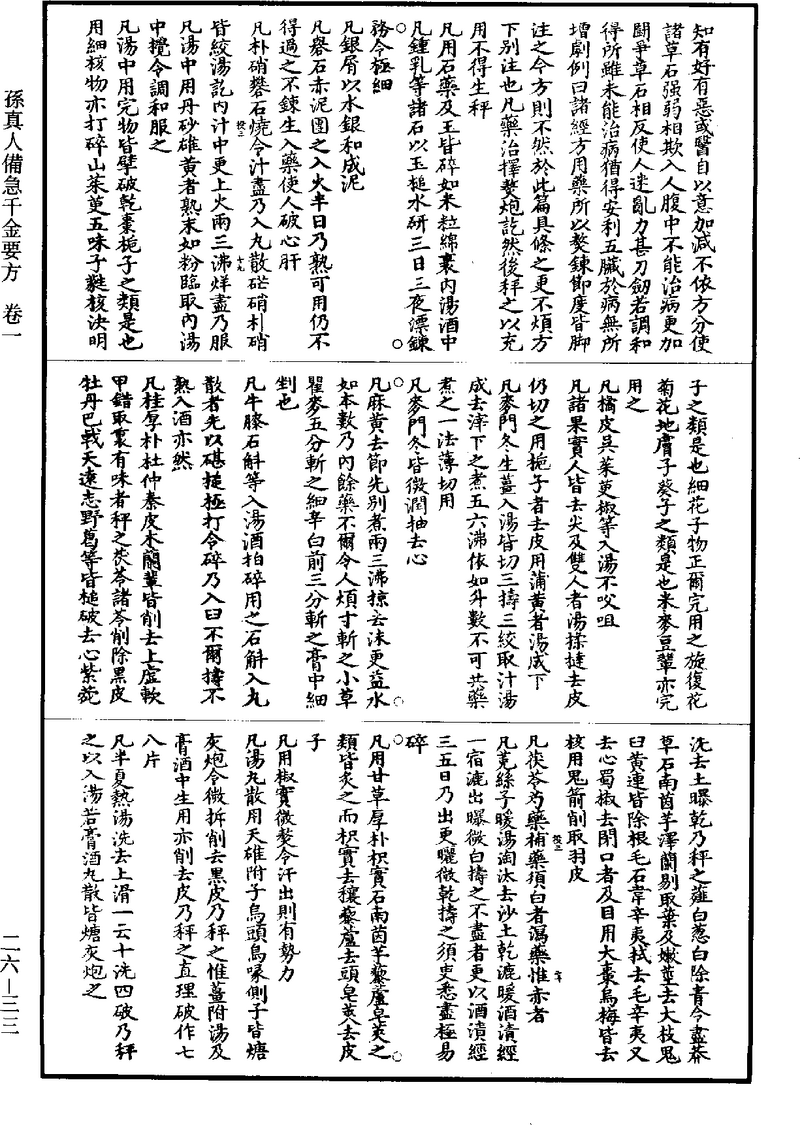 知有好有惡或醫自以意加減不依方分使
諸草石强弱相欺入人腹中不能治病更加
鬪爭草石相反使人迷亂力甚刀劒若調和
得所雖未能治病猶得安利五臟於病無所
增劇例曰諸經方用藥所以熬鍊節度皆脚
注之今方則不然於此篇具條之更不煩方
下别注也凡藥治擇熬炮訖然後秤之以充
用不得生秤
凡用石藥及玉皆碎如米粒綿裹内湯酒中
凡鍾乳等諸石以玉槌水研三日三夜漂鍊
務令極細
凡銀屑以水銀和成泥
凡礜石赤泥團之入火半日乃熟可用仍不
得過之不鍊生入藥使人破心肝
凡朴硝礬石燒令汁盡乃入丸散芒硝朴硝
皆絞湯訖内汁中更上火兩三沸烊盡乃服
凡湯中用丹砂雄黄者熟末如粉臨取内湯
中攪令調和服之
凡湯中用完物皆擘破乾棗梔子之類是也
用細核物亦打碎山茱萸五味子蕤核决明
子之類是也細花子物正爾完用之旋復花
菊花地膚子葵子之類是也米麥豆輩亦完
用之
凡橘皮吳茱萸椒等入湯不㕮咀
凡諸果實人皆去尖及雙人者湯揉撻去皮
仍切之用梔子者去皮用蒲黄者湯成下
凡麥門冬生薑入湯皆切三擣三絞取汁湯
成去滓下之煮五六沸依如升數不可共藥
煮之一法薄切用
凡麥門冬皆微潤抽去心
凡麻黄去節先别煮兩三沸掠去沫更益水
如本數乃内餘藥不爾令人煩寸斬之小草
瞿麥五分斬之細辛白前三分斬之膏中細
剉也
凡牛膝石斛等入湯酒拍碎用之石斛入丸
散者先以碪槌極打令碎乃入臼不爾擣不
熟入酒亦然
凡桂厚朴杜仲秦皮木蘭輩皆削去上虛軟
甲錯取裏有味者秤之茯苓諸苓削除黑皮
牡丹巴戟天遠志野葛等皆槌破去心紫菀
洗去土曝乾乃秤之薤白葱白除青令盡莽
草石南茵芋澤蘭剔取葉及嫩莖去大枝鬼
臼黄連皆除根毛石韋辛夷拭去毛辛夷又
去心蜀椒去閉口者及目用大棗烏梅皆去
核用鬼箭削取羽皮
凡茯苓芍藥補藥須白者瀉藥惟赤者
凡菟絲子暖湯淘汰去沙土乾漉暖酒漬經
一宿漉出曝微白擣之不盡者更以酒漬經
三五日乃出更曬微乾擣之須臾悉盡極易
碎
凡用甘草厚朴枳實石南茵芋藜蘆皂莢之
類皆炙之而枳實去穰藜蘆去頭皂莢去皮
子
凡用椒實微熬令汗出則有勢力
凡湯丸散用天雄附子烏頭烏喙側子皆煻
灰炮令微拆削去黑皮乃秤之惟薑附湯及
膏酒中生用亦削去皮乃秤之直理破作七
八片
凡半夏熱湯洗去上滑一云十洗四破乃秤
之以入湯若膏酒丸散皆煻灰炮之
孫真人備急千金要方　卷一
二六－三三